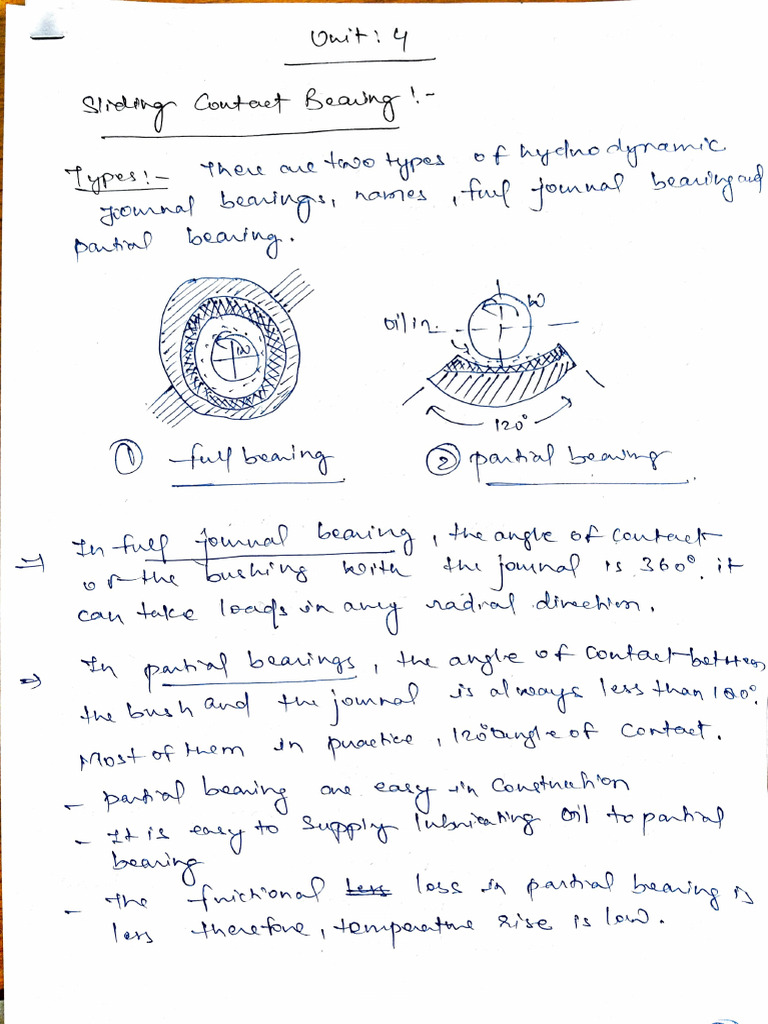 Unit: 4
Sliding Contact Bearing :-
Types:- There are two types of hydrodynamic
journal bearings, names, full journal bearing and
partial bearing.
ω
ω
oil in
120°
① full bearing
② partial bearing
⇒ In full journal bearing, the angle of contact
of the bushing with the journal is 360°. it
can take loads in any radial direction.
⇒ In partial bearings, the angle of contact between
the bush and the journal is always less than 180°.
Most of them in practice, 120° angle of contact.
- partial bearing are easy in construction
- It is easy to supply lubricating oil to partial
bearing
- The frictional loss in partial bearing is
less therefore, temperature rise is low.